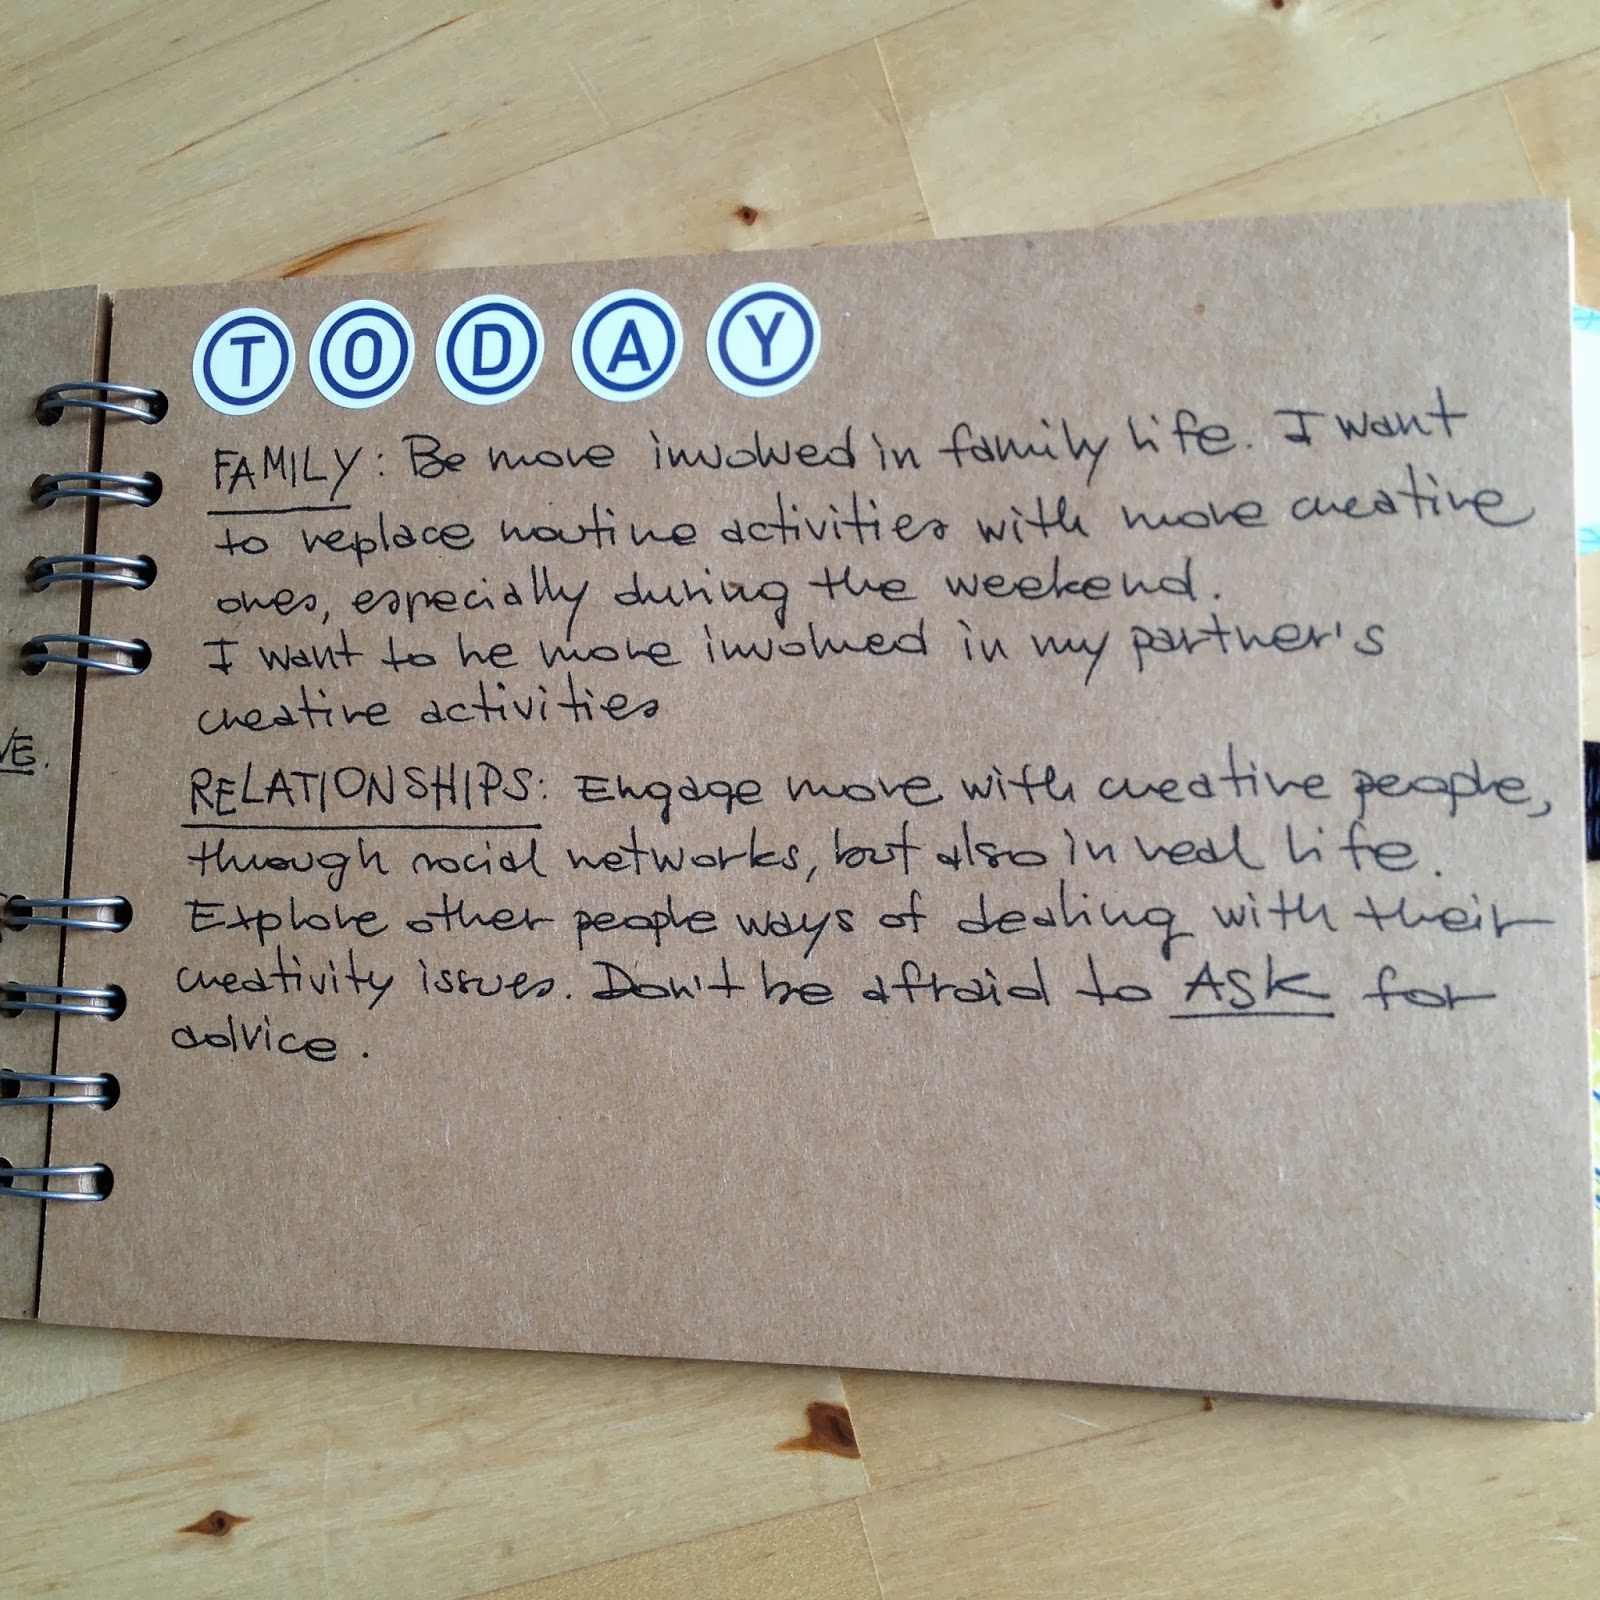 TODAY
FAMILY: Be more involved in family life. I want
to replace routine activities with more creative
ones, especially during the weekend.
I want to be more involved in my partner's
creative activities
VE.
RELATIONSHIPS: Engage more with creative people,
through social networks, but also in real life.
Explore other people ways of dealing with their
creativity issues. Don't be afraid to ASK for
advice.